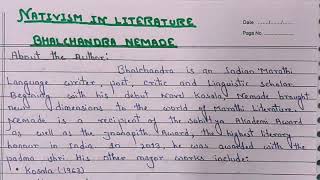 NATIVISM IN LITERATURE
BHALCHANDRA NEMADE
Date ......./......./.......
Page No.
About the Author:
Bhalchandra is an Indian Marathi
Language writer, poet, critic and Linguistic scholar
Begining with his debut Novel Kosala Nemade brought
new dimensions to the world of Marathi Literature
Nemade is a recipient of the sahitya Akademi Award
as well as the Jnanapith Award, the highest literary
honour in India. In 2013, he was awarded with the
padma shri. His other major works include:
• Kosla (1963)